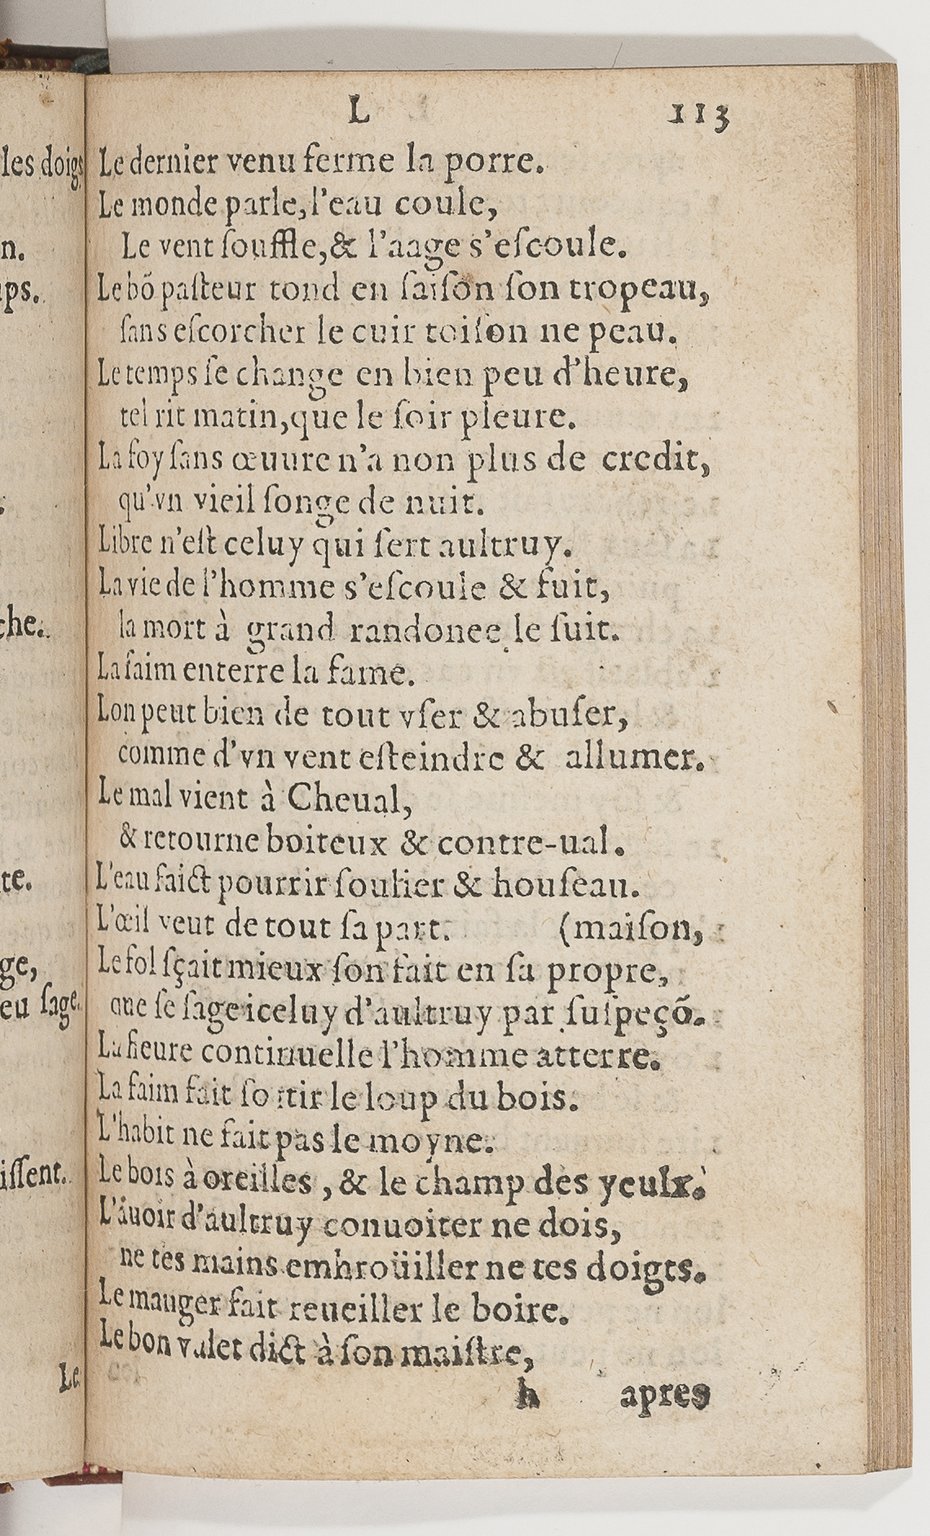 L 113
les doigs
n.
ps.
che.
te.
ge,
eu sage.
issent.
Le
Le dernier venu ferme la porre.
Le monde parle, l'eau coule,
Le vent ſouffle, & l'aage s'eſcoule.
Le bõ paſteur tond en ſaiſon ſon tropeau,
ſans eſcorcher le cuir toiſon ne peau.
Le temps ſe change en bien peu d'heure,
tel rit matin, que le ſoir pleure.
La foy ſans œuure n'a non plus de credit,
qu'vn vieil ſonge de nuit.
Libre n'eſt celuy qui ſert aultruy.
La vie de l'homme s'eſcoule & fuit,
la mort à grand randonee le ſuit.
La faim enterre la fame.
Lon peut bien de tout vſer & abuſer,
comme d'vn vent eſteindre & allumer.
Le mal vient à Cheual,
& retourne boiteux & contre-ual.
L'eau faict pourrir ſoulier & houſeau.
L'œil veut de tout ſa part. (maiſon,
Le fol ſçait mieux ſon fait en ſa propre,
que le ſage iceluy d'aultruy par ſuſpeçõ.
La fieure continuelle l'homme atterre.
La faim fait ſortir le loup du bois.
L'habit ne fait pas le moyne.
Le bois à oreilles, & le champ des yeulx.
L'auoir d'aultruy conuoiter ne dois,
ne tes mains embroüiller ne tes doigts.
Le manger fait reueiller le boire.
Le bon valet dict à ſon maiſtre,
h apres